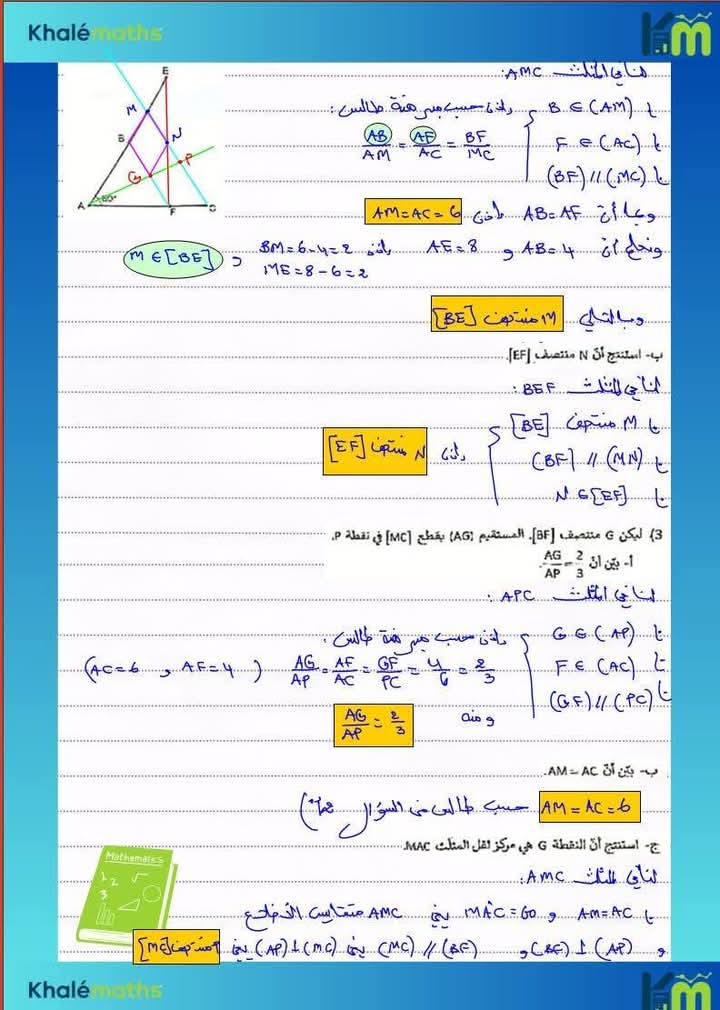 Khalémaths
Km
لنا في المثلث AMC:
لنا B ∈ (AM)
لنا F ∈ (AC)
لنا (BF) // (MC)
إذن حسب مبرهنة طالس:
AB/AM = AF/AC = BF/MC
وبما أن AB = AF فإن AM = AC = 6
ونعلم أن AB = 4 و AE = 8 إذن BM = 6 - 4 = 2 و M ∈ [BE]
ME = 8 - 6 = 2
وبالتالي M منتصف [BE]
ب- استنتج أنّ N منتصف [EF].
لنا في المثلث BEF:
لنا M منتصف [BE]
لنا (MN) // (BF)
لنا N ∈ [EF]
إذن N منتصف [EF]
3) ليكن G منتصف [BF]. المستقيم (AG) يقطع [MC] في نقطة P.
أ- بيّن أنّ AG/AP = 2/3.
لنا في المثلث APC:
لنا G ∈ (AP)
لنا F ∈ (AC)
لنا (GF) // (PC)
إذن حسب مبرهنة طالس:
AG/AP = AF/AC = GF/PC = 4/6 = 2/3 (AF = 4 , AC = 6)
ومنه AG/AP = 2/3
ب- بيّن أنّ AM = AC.
AM = AC = 6 حسب طالس في السؤال
ج- استنتج أنّ النقطة G هي مركز ثقل المثلث MAC.
لنا في المثلث AMC:
لنا AM = AC و MÂC = 60 يعني AMC متقايس الأضلاع
و (AP) ⊥ (BF) و (BF) // (MC) يعني (MC) ⊥ (AP) يعني P منتصف [MC]
E
M
B
N
P
G
A
60°
F
C
Mathematics
1 2
3
Khalémaths
Km